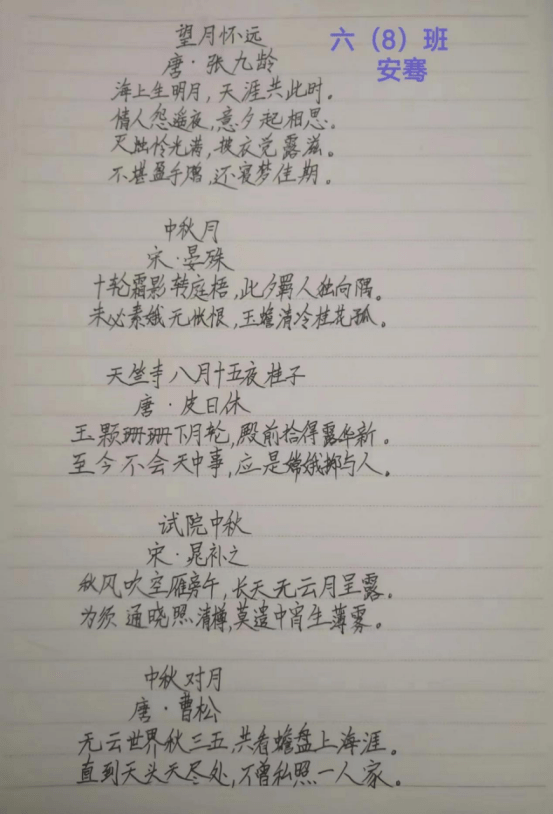 望月怀远
六（8）班
安骞
唐·张九龄
海上生明月，天涯共此时。
情人怨遥夜，竟夕起相思。
灭烛怜光满，披衣觉露滋。
不堪盈手赠，还寝梦佳期。
中秋月
宋·晏殊
十轮霜影转庭梧，此夕羁人独向隅。
未必素娥无怅恨，玉蟾清冷桂花孤。
天竺寺八月十五夜桂子
唐·皮日休
玉颗珊珊下月轮，殿前拾得露华新。
至今不会天中事，应是嫦娥掷与人。
试院中秋
宋·晁补之
秋风吹空雁旁午，长天无云月呈露。
为须通晓照清樽，莫遣中宵生薄雾。
中秋对月
唐·曹松
无云世界秋三五，共看蟾盘上海涯。
直到天头天尽处，不曾私照一人家。